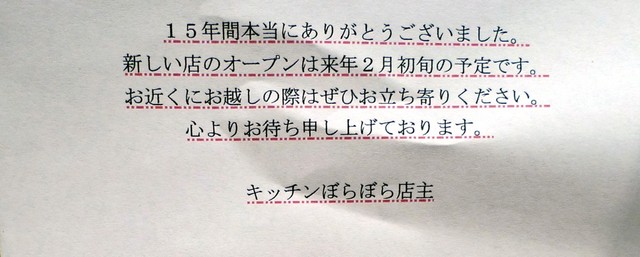 １５年間本当にありがとうございました。
新しい店のオープンは来年２月初旬の予定です。
お近くにお越しの際はぜひお立ち寄りください。
心よりお待ち申し上げております。
キッチンぼらぼら店主